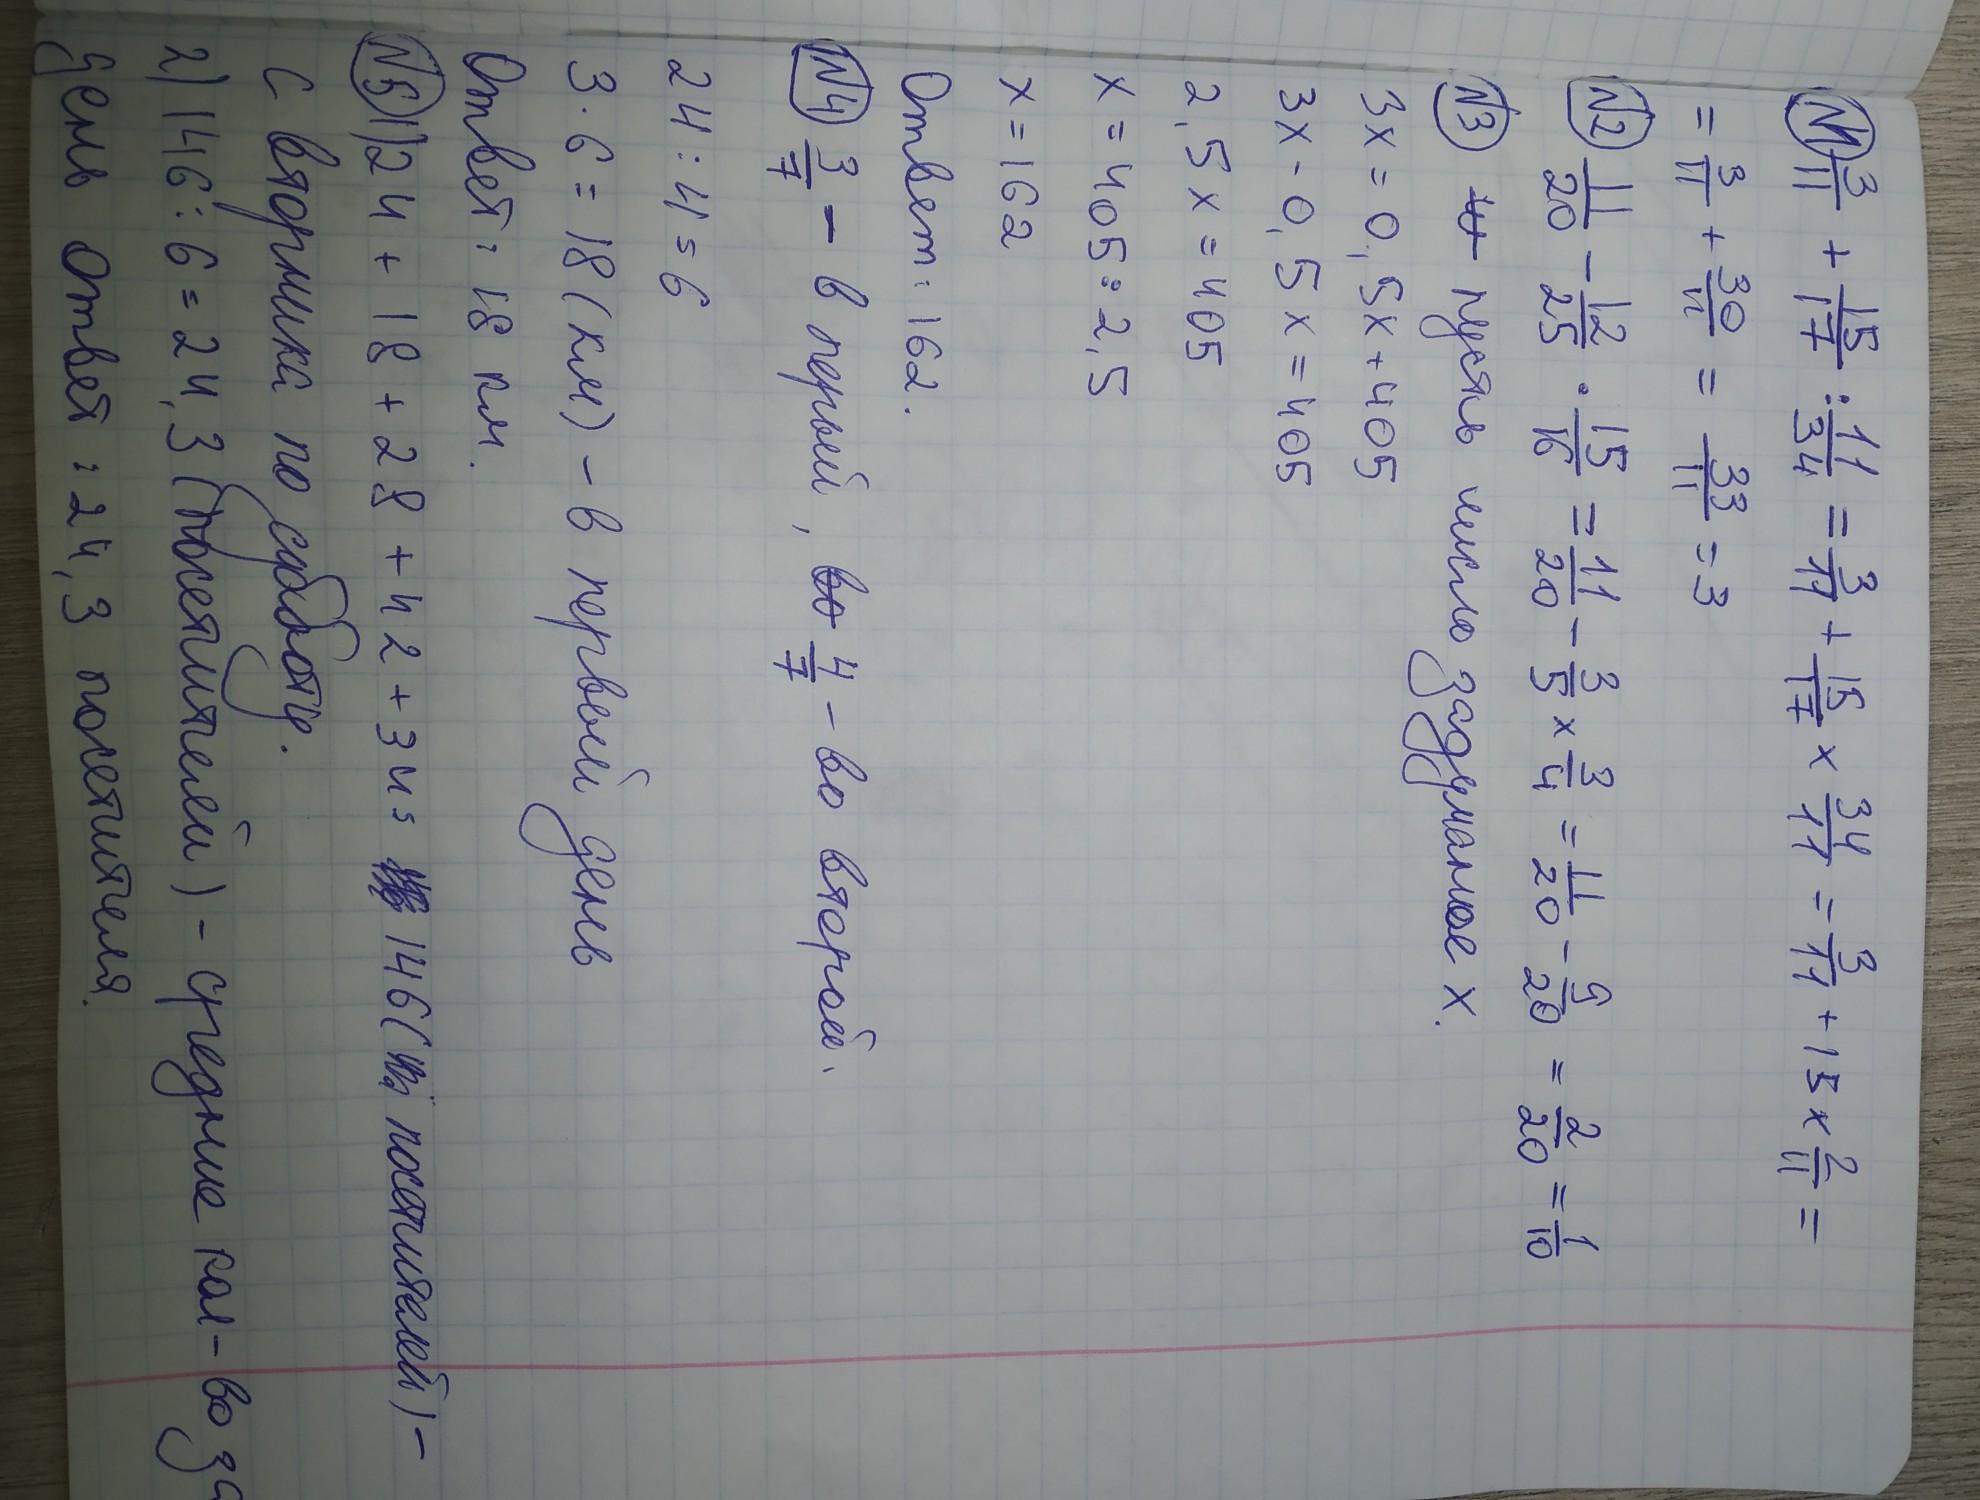 №1 3/11 + 15/17 : 11/34 = 3/11 + 15/17 × 34/11 = 3/11 + 15 × 2/11 =
= 3/11 + 30/11 = 33/11 = 3
№2 11/20 - 12/25 · 15/16 = 11/20 - 3/5 × 3/4 = 11/20 - 9/20 = 2/20 = 1/10
№3 пусть число задуманное x.
3x = 0,5x + 405
3x - 0,5x = 405
2,5x = 405
x = 405 : 2,5
x = 162
Ответ: 162.
№4 3/7 - в первый, 4/7 - во второй.
24 : 4 = 6
3 · 6 = 18 (км) - в первый день
Ответ: 18 км.
№5 1) 24 + 18 + 28 + 42 + 34 = 146 (посетителей) -
с вторника по субботу.
2) 146 : 6 = 24,3 (посетителей) - средние кол-во за
день Ответ: 24,3 посетителя.